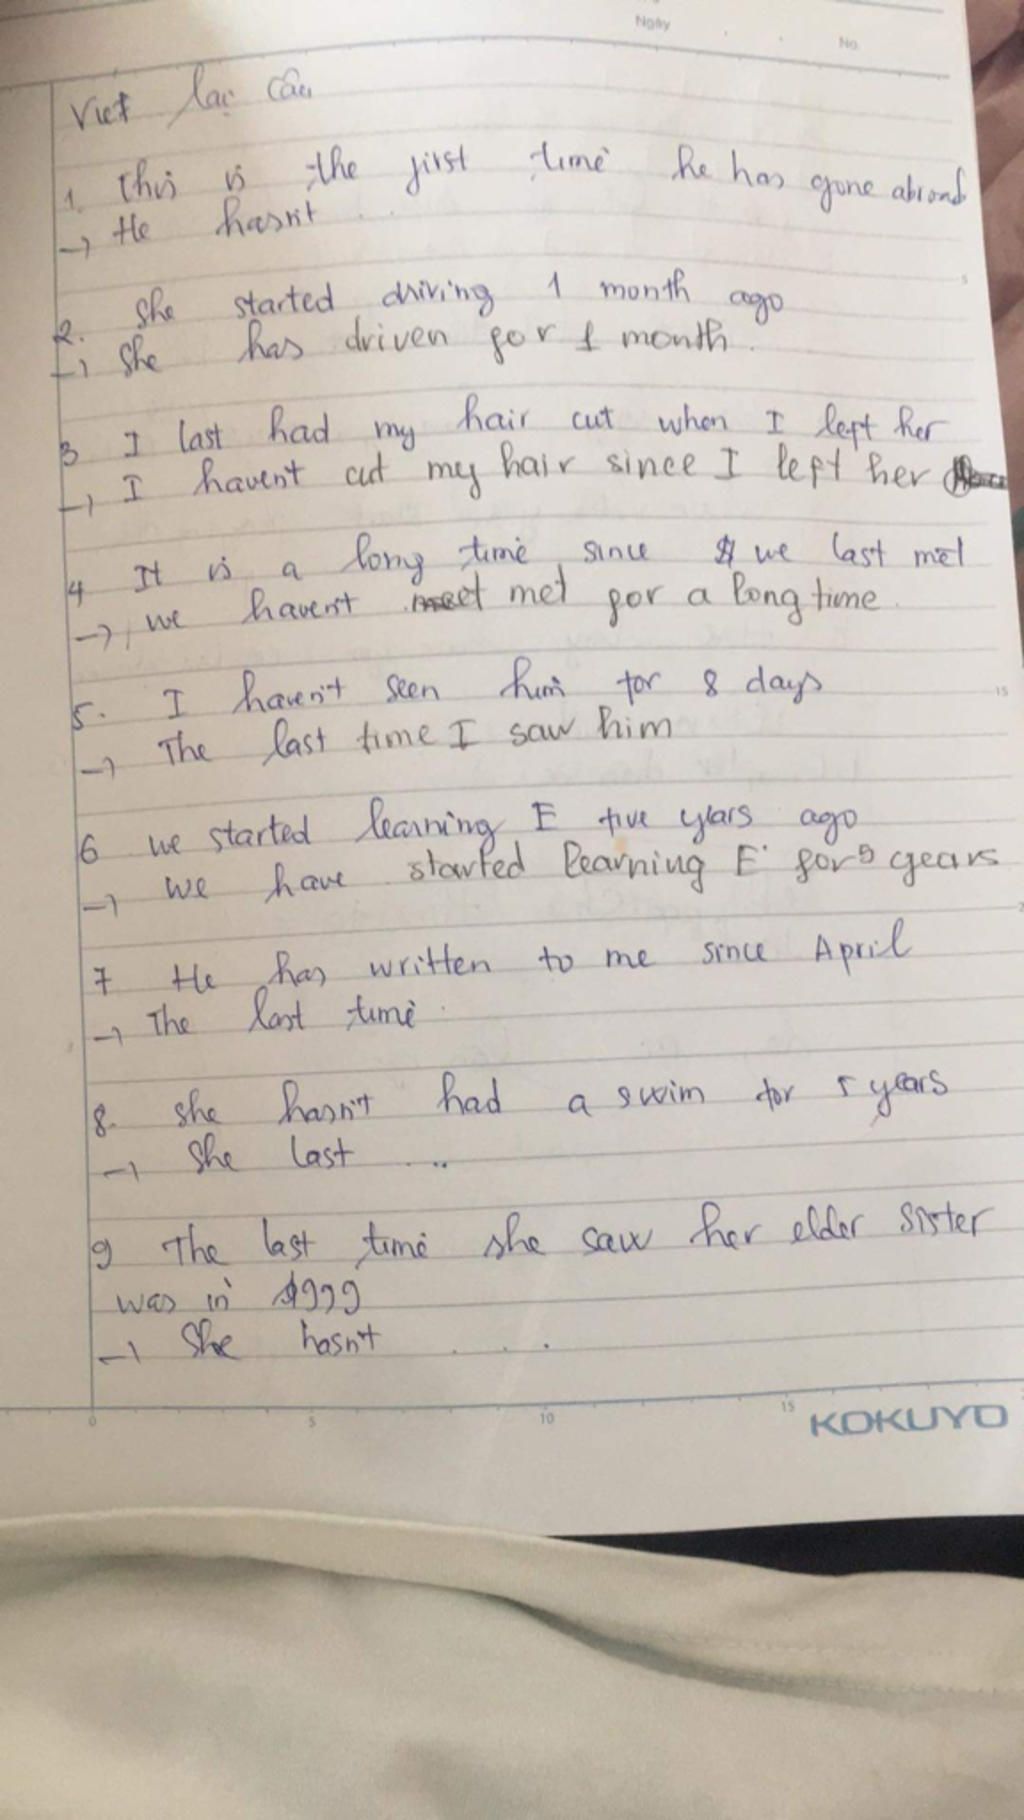 Ngày
No.
Viết lại câu
1. This is the first time he has gone abroad
→ He hasn't ...
2. She started driving 1 month ago
→ She has driven for 1 month.
3 I last had my hair cut when I left her
→ I haven't cut my hair since I left her
4 It is a long time since we last met
→ we haven't met for a long time.
5. I haven't seen him for 8 days
→ The last time I saw him
6 we started learning E five years ago
→ we have started learning E for 5 years
7 He has written to me since April
→ The last time.
8. she hasn't had a swim for 5 years
→ She last ...
9 The last time she saw her elder sister
was in 1999
→ She hasn't ...
0 5 10 15 KOKUYO